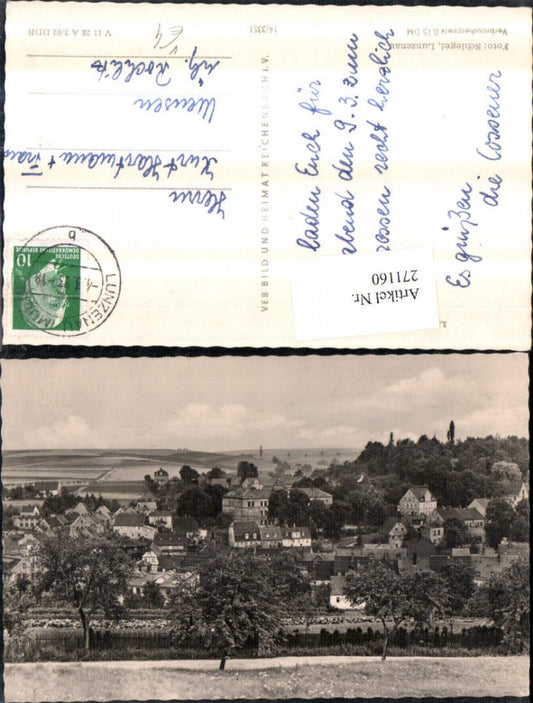 Foto: Schlegel, Lunzenau
Verbraucherpreis 0,15 DM
14/3351
V 11 28 A 3/62 DDR
VEB BILD UND HEIMAT REICHENBACH I. V.
laden Euch für
abend den 9. 3. zum
essen recht herzlich
Es grüßen
die Cossener
Herrn
Kurt Hartmann + Frau
Meusen
Krs. Rochlitz
DEUTSCHE
DEMOKRATISCHE REPUBLIK
10
LUNZENAU
b
Artikel Nr.
271160